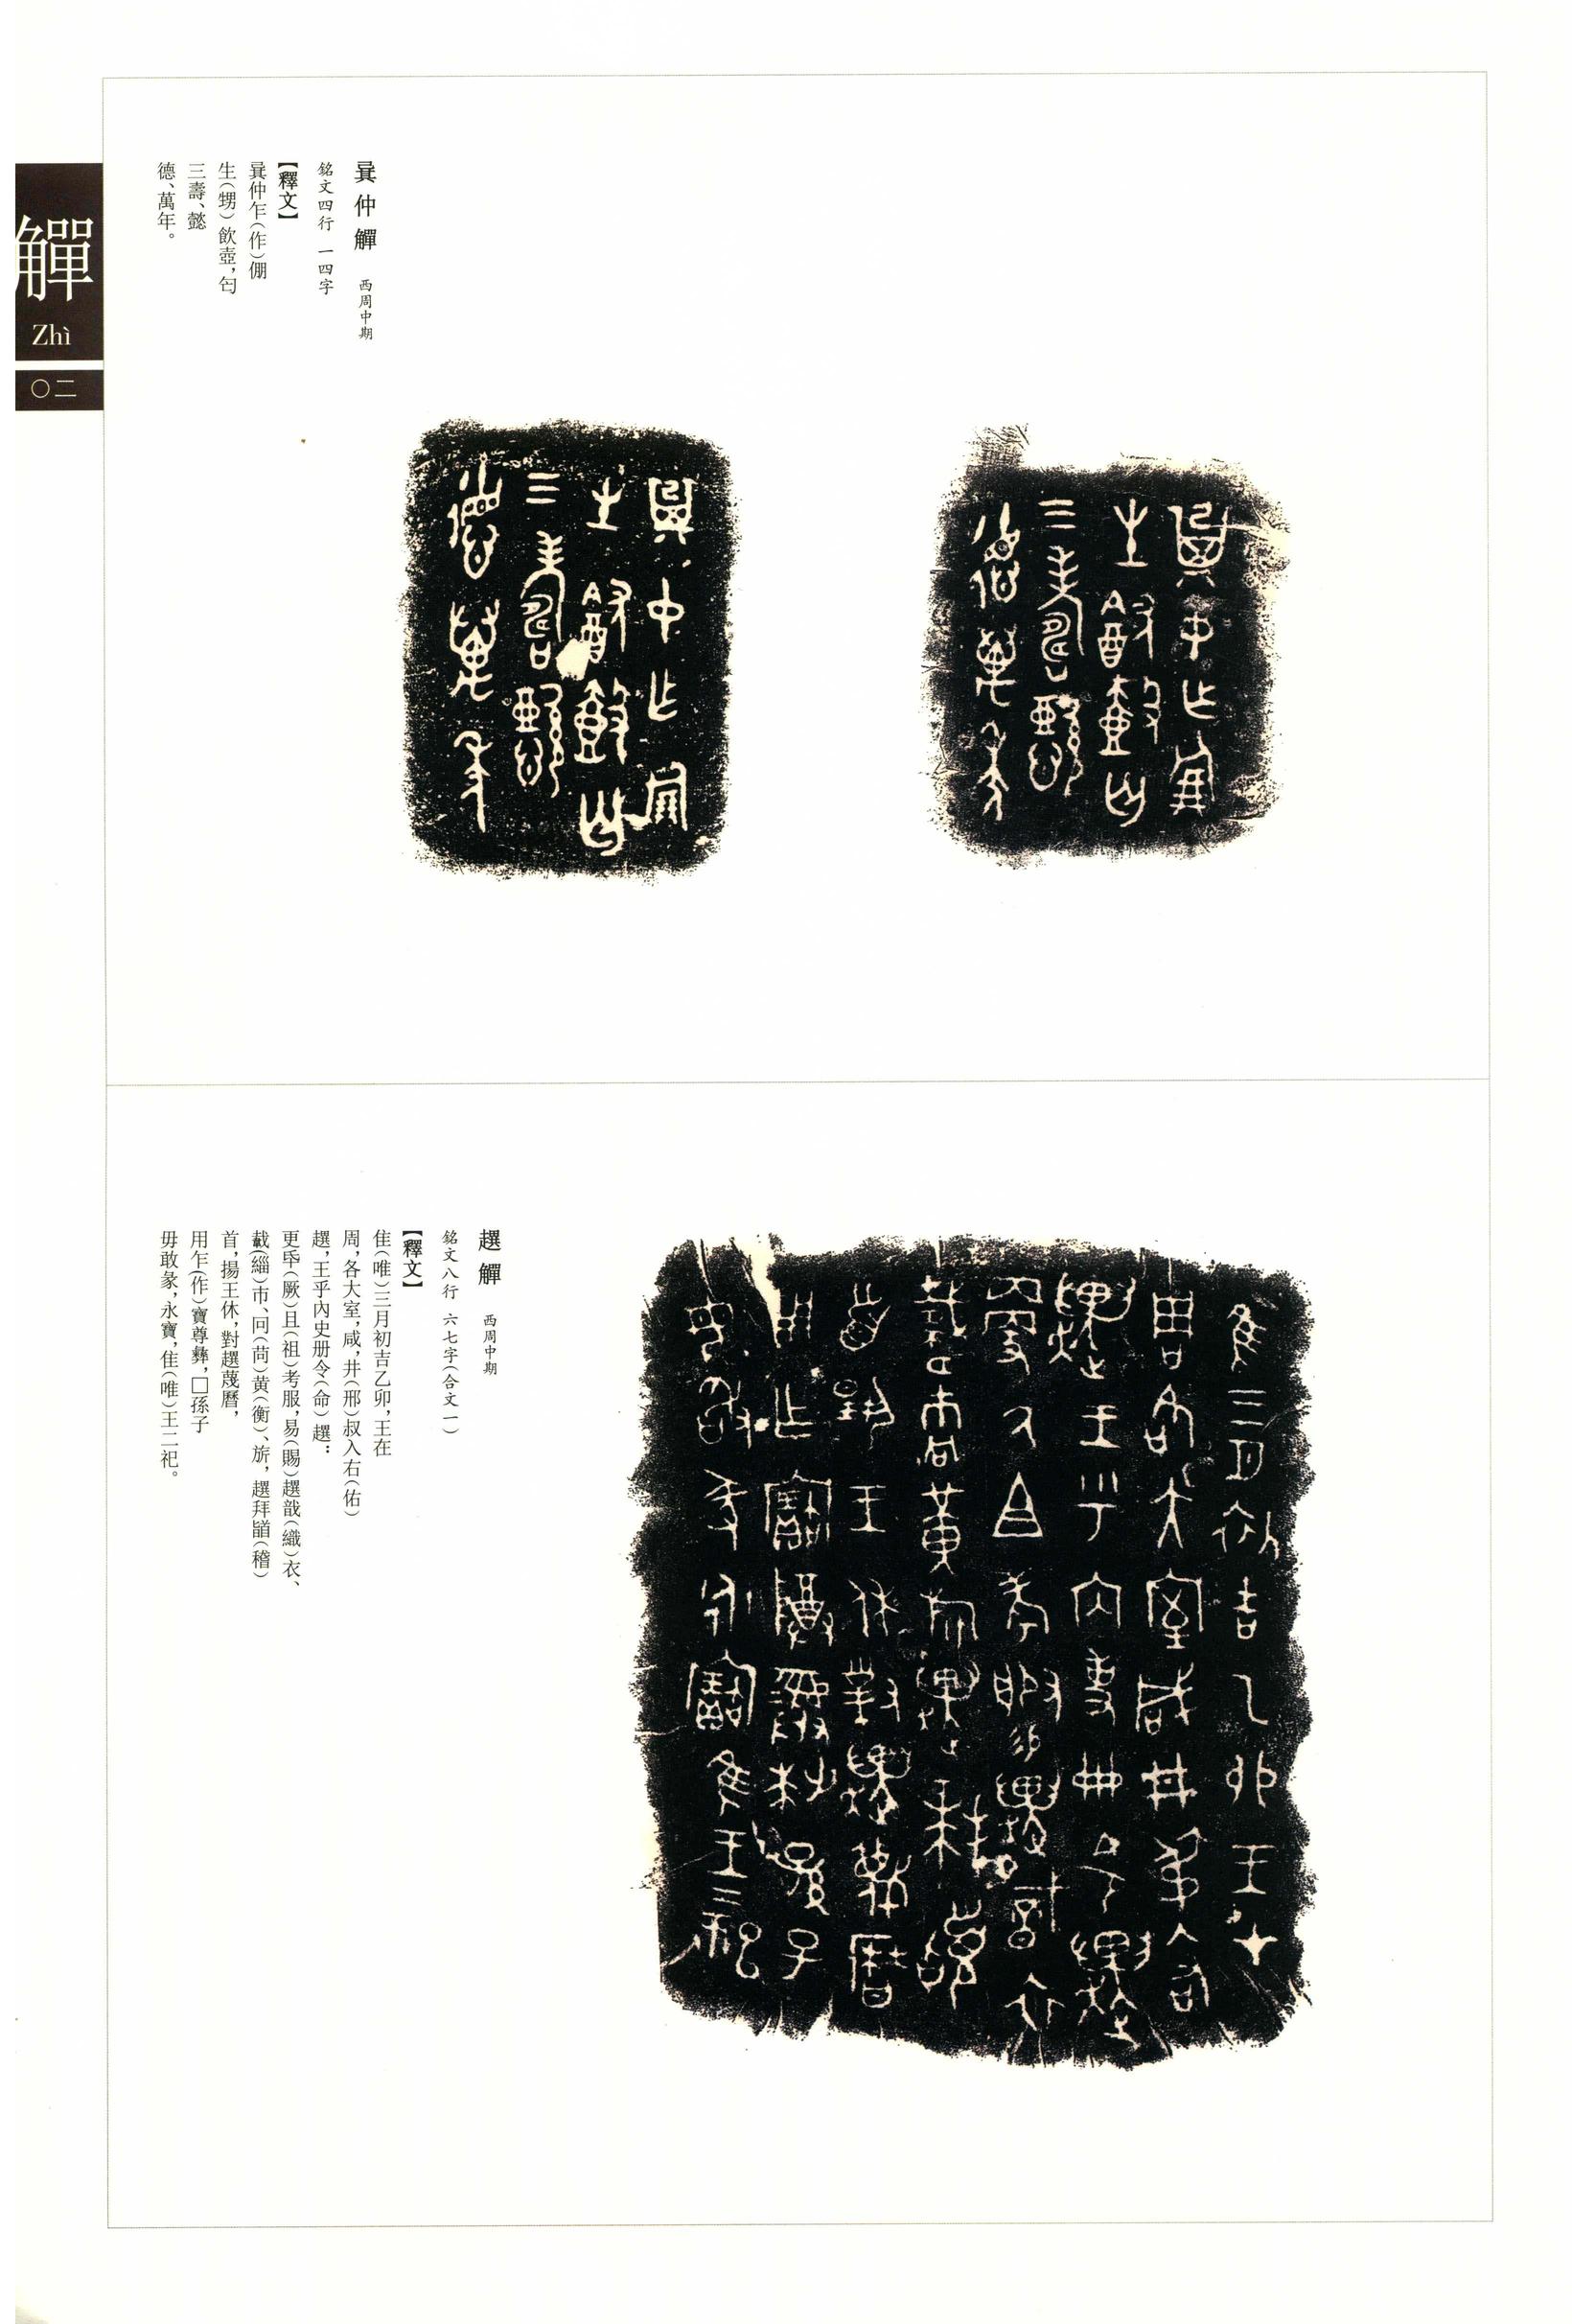 觶
Zhì
〇二
㠱仲觶 西周中期
銘文四行 一四字
【釋文】
㠱仲乍(作)倗
生(甥)飲壺,匄
三壽、懿
德、萬年。
趩觶 西周中期
銘文八行 六七字(合文一)
【釋文】
隹(唯)三月初吉乙卯,王在
周,各大室,咸,井(邢)叔入右(佑)
趩,王乎內史册令(命)趩:
更氒(厥)且(祖)考服,易(賜)趩戠(織)衣、
載(緇)巿、冋(苘)黃(衡)、旂,趩拜𩒨(稽)
首,揚王休,對趩蔑曆,
用乍(作)寶尊彝,□孫子
毋敢彖,永寶,隹(唯)王二祀。